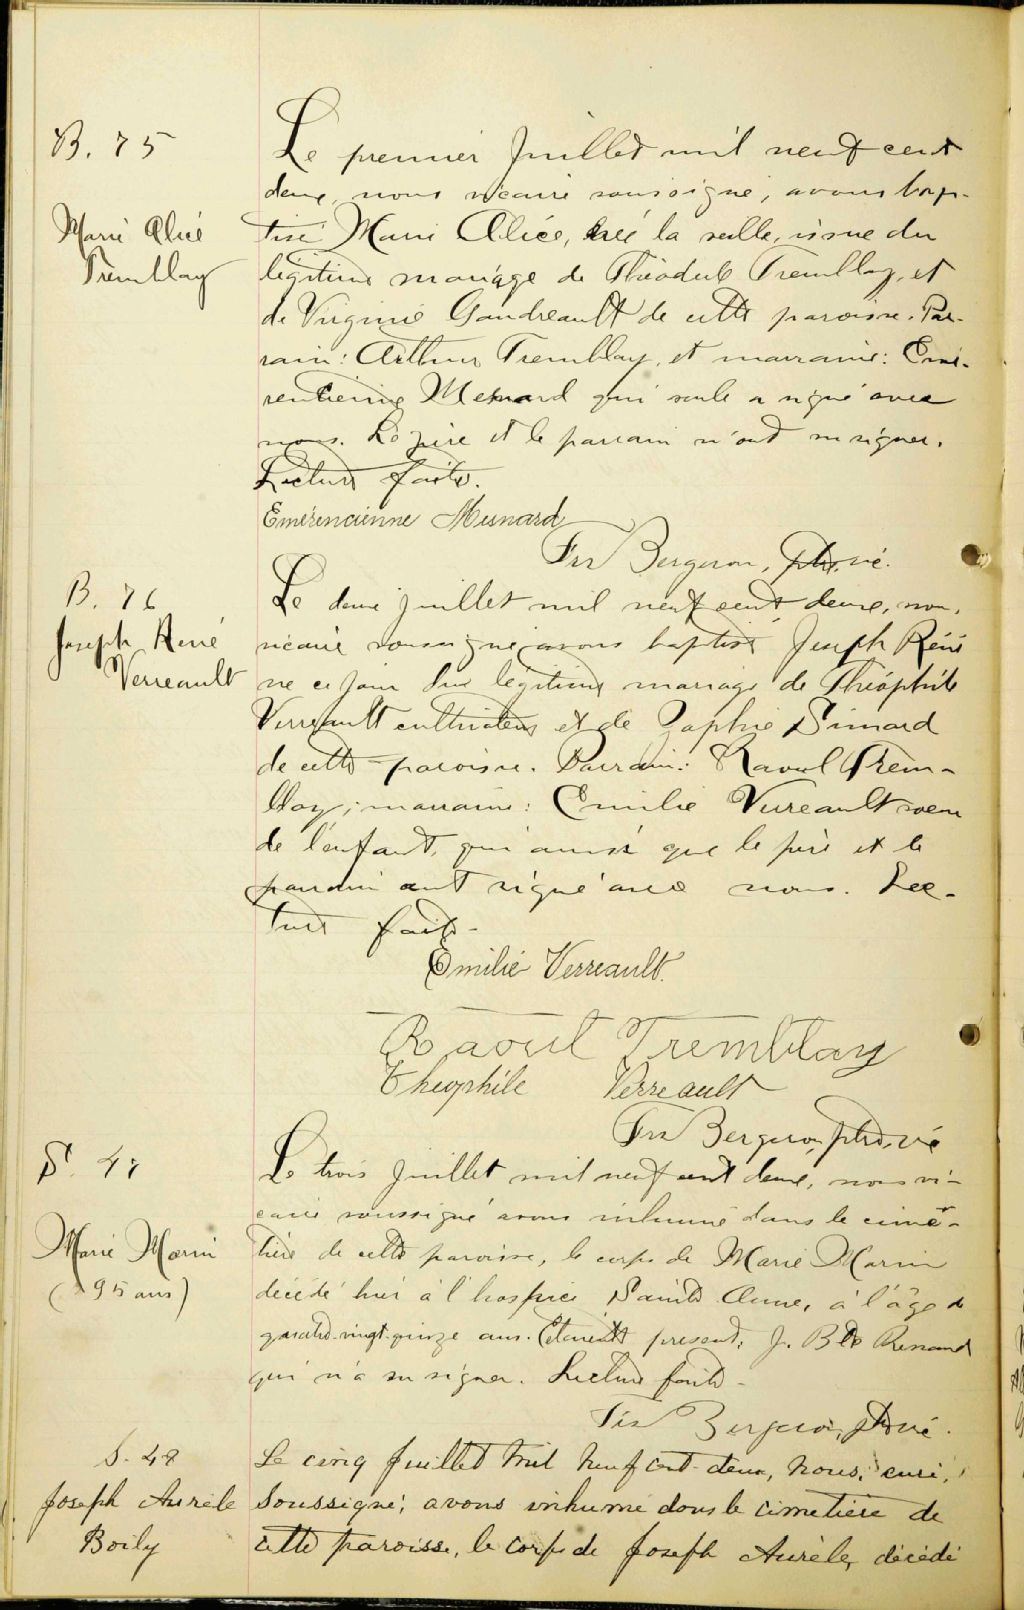 B. 75
Marie Alice
Tremblay
Le premier Juillet mil neuf cent
deux, nous vicaire soussigné, avons bap-
tisé Marie Alice, née la veille, issue du
légitime mariage de Théodule Tremblay, et
de Virginie Gaudreault de cette paroisse. Par-
rain: Arthur Tremblay, et marraine: Emé-
rencienne Mesnard qui seule a signé avec
nous. Le père et le parrain n'ont su signer.
Lecture faite.
Emérencienne Mesnard
Frs Bergeron, ptre. vic.
B. 76
Joseph René
Verreault
Le deux juillet mil neuf cent deux, nous,
vicaire soussigné avons baptisé Joseph René
né ce jour du légitime mariage de Théophile
Verreault cultivateur et de Zaphie Simard
de cette paroisse. Parrain: Raoul Trem-
blay; marraine: Emilie Verreault soeur
de l'enfant, qui ainsi que le père et le
parrain ont signé avec nous. Lec-
ture faite.
Emilie Verreault.
Raoul Tremblay
Theophile Verreault
Frs Bergeron, ptre. vic
S. 47
Marie Morin
(95 ans)
Le trois Juillet mil neuf cent deux, nous vi-
caire soussigné avons inhumé dans le cime-
tière de cette paroisse, le corps de Marie Morin
décédé hier à l'hospice Sainte Anne, à l'âge de
quatre-vingt-quinze ans. Etaient présent, J. Bte Renaud
qui n'a su signer. Lecture faite.
Frs Bergeron, ptre vic.
S. 48
Joseph Aurèle
Boily
Le cinq Juillet mil neuf cent-deux, nous, curé,
soussigné, avons inhumé dans le cimetière de
cette paroisse, le corps de Joseph Aurèle, décédé